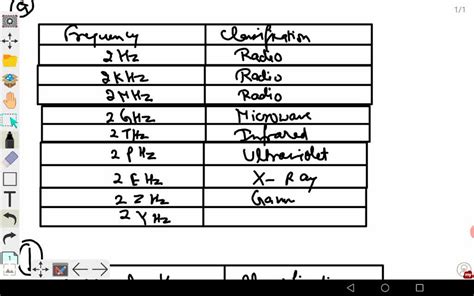 1/1
Frequency Classification
2 Hz Radio
2 KHz Radio
2 MHz Radio
2 GHz Microwave
2 THz Infrared
2 PHz Ultraviolet
2 EHz X-Ray
2 ZHz Gam
2 YHz